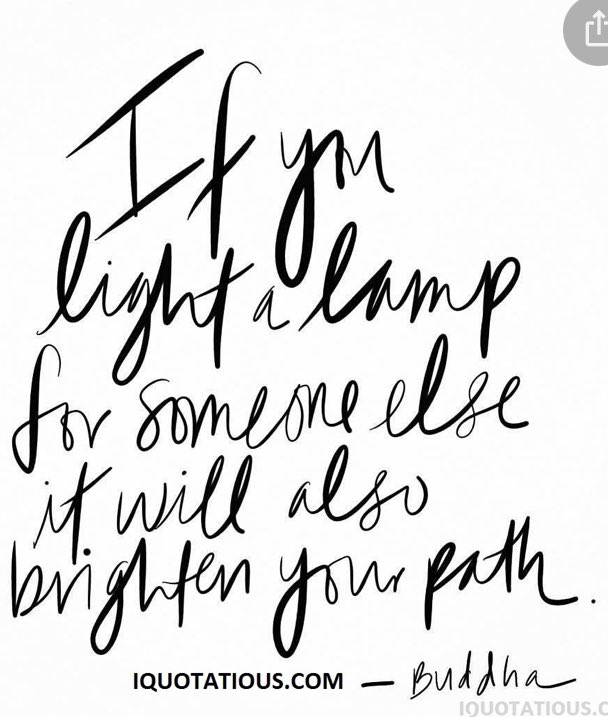 If you
light a lamp
for someone else
it will also
brighten your path.
IQUOTATIOUS.COM — Buddha
IQUOTATIOUS.C